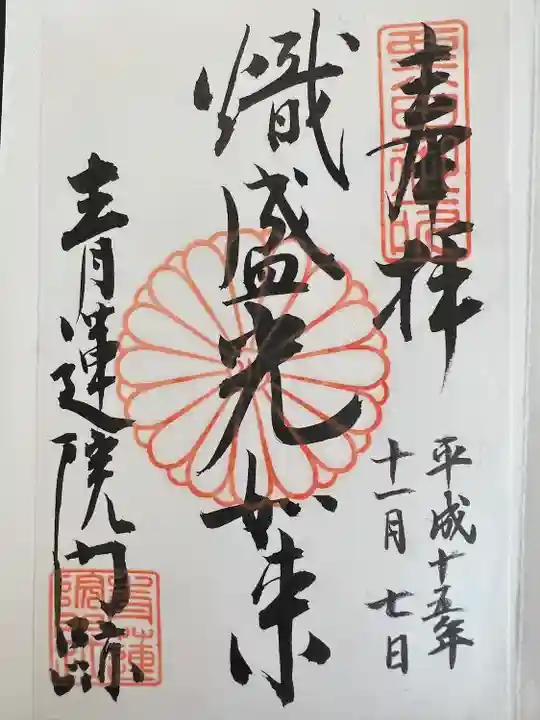 奉拝
平成十五年
十一月七日
熾盛光如来
青蓮院門跡
粟田御所